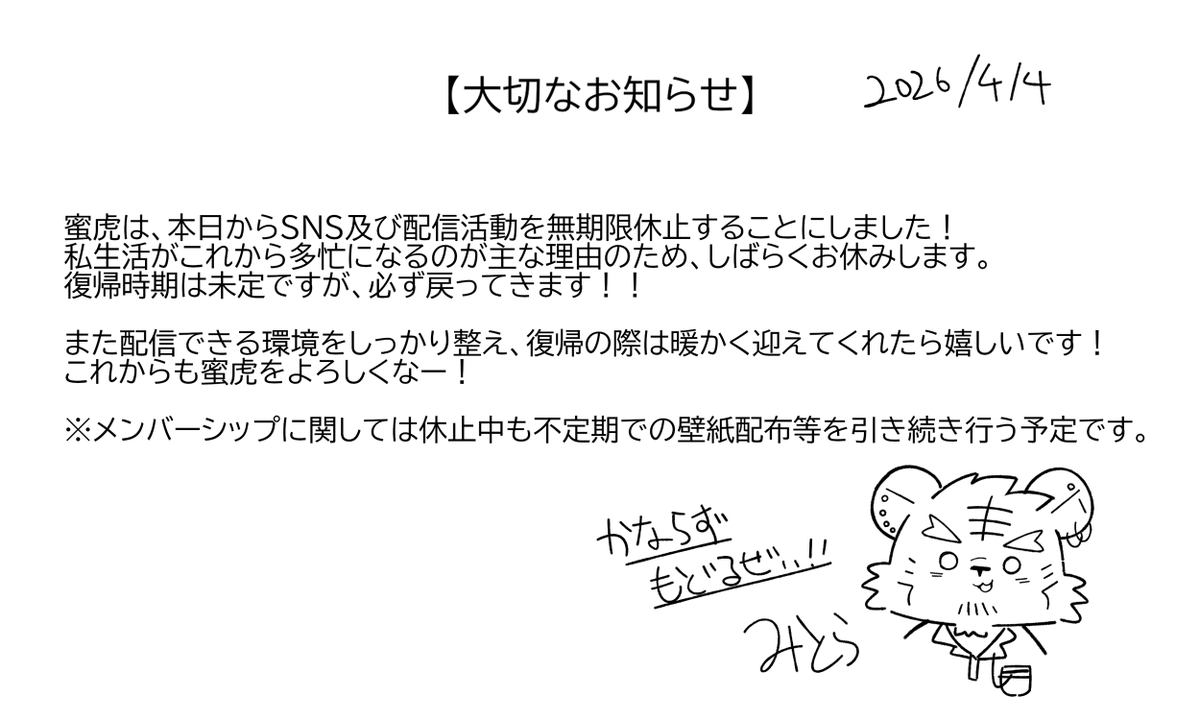 【大切なお知らせ】 2026/4/4
蜜虎は、本日からSNS及び配信活動を無期限休止することにしました！
私生活がこれから多忙になるのが主な理由のため、しばらくお休みします。
復帰時期は未定ですが、必ず戻ってきます！！
また配信できる環境をしっかり整え、復帰の際は暖かく迎えてくれたら嬉しいです！
これからも蜜虎をよろしくなー！
※メンバーシップに関しては休止中も不定期での壁紙配布等を引き続き行う予定です。
かならず
もどるぜぃ、!!
みとら